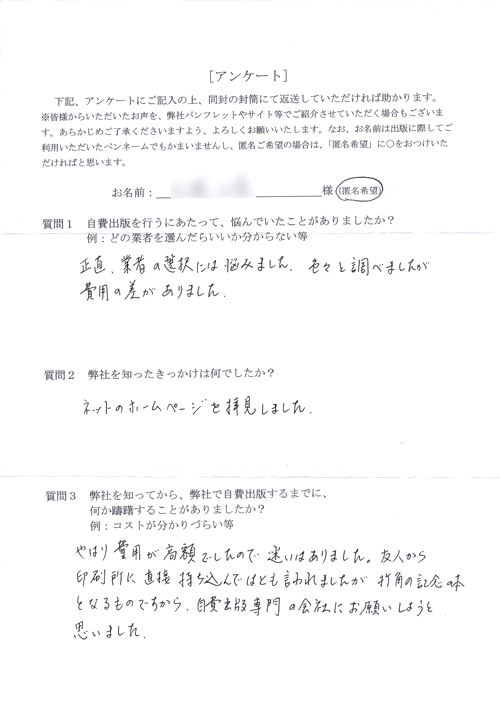 [アンケート]
下記、アンケートにご記入の上、同封の封筒にて返送していただければ助かります。
※皆様からいただいたお声を、弊社パンフレットやサイト等でご紹介させていただく場合もございま
す。あらかじめご了承くださいますよう、よろしくお願いいたします。なお、お名前は出版に際してご
利用いただいたペンネームでもかまいませんし、匿名ご希望の場合は、「匿名希望」に○をおつけいた
だければと思います。
お名前： 様 (匿名希望)
質問１ 自費出版を行うにあたって、悩んでいたことがありましたか？
例：どの業者を選んだらいいか分からない等
正直、業者の選択には悩みました。色々と調べましたが
費用の差がありました。
質問２ 弊社を知ったきっかけは何でしたか？
ネットのホームページを拝見しました。
質問３ 弊社を知ってから、弊社で自費出版するまでに、
何か躊躇することがありましたか？
例：コストが分かりづらい等
やはり費用が高額でしたので迷いはありました。友人から
印刷所に直接持ち込んではとも言われましたが折角の記念の本
となるものですから、自費出版専門の会社にお願いしようと
思いました。